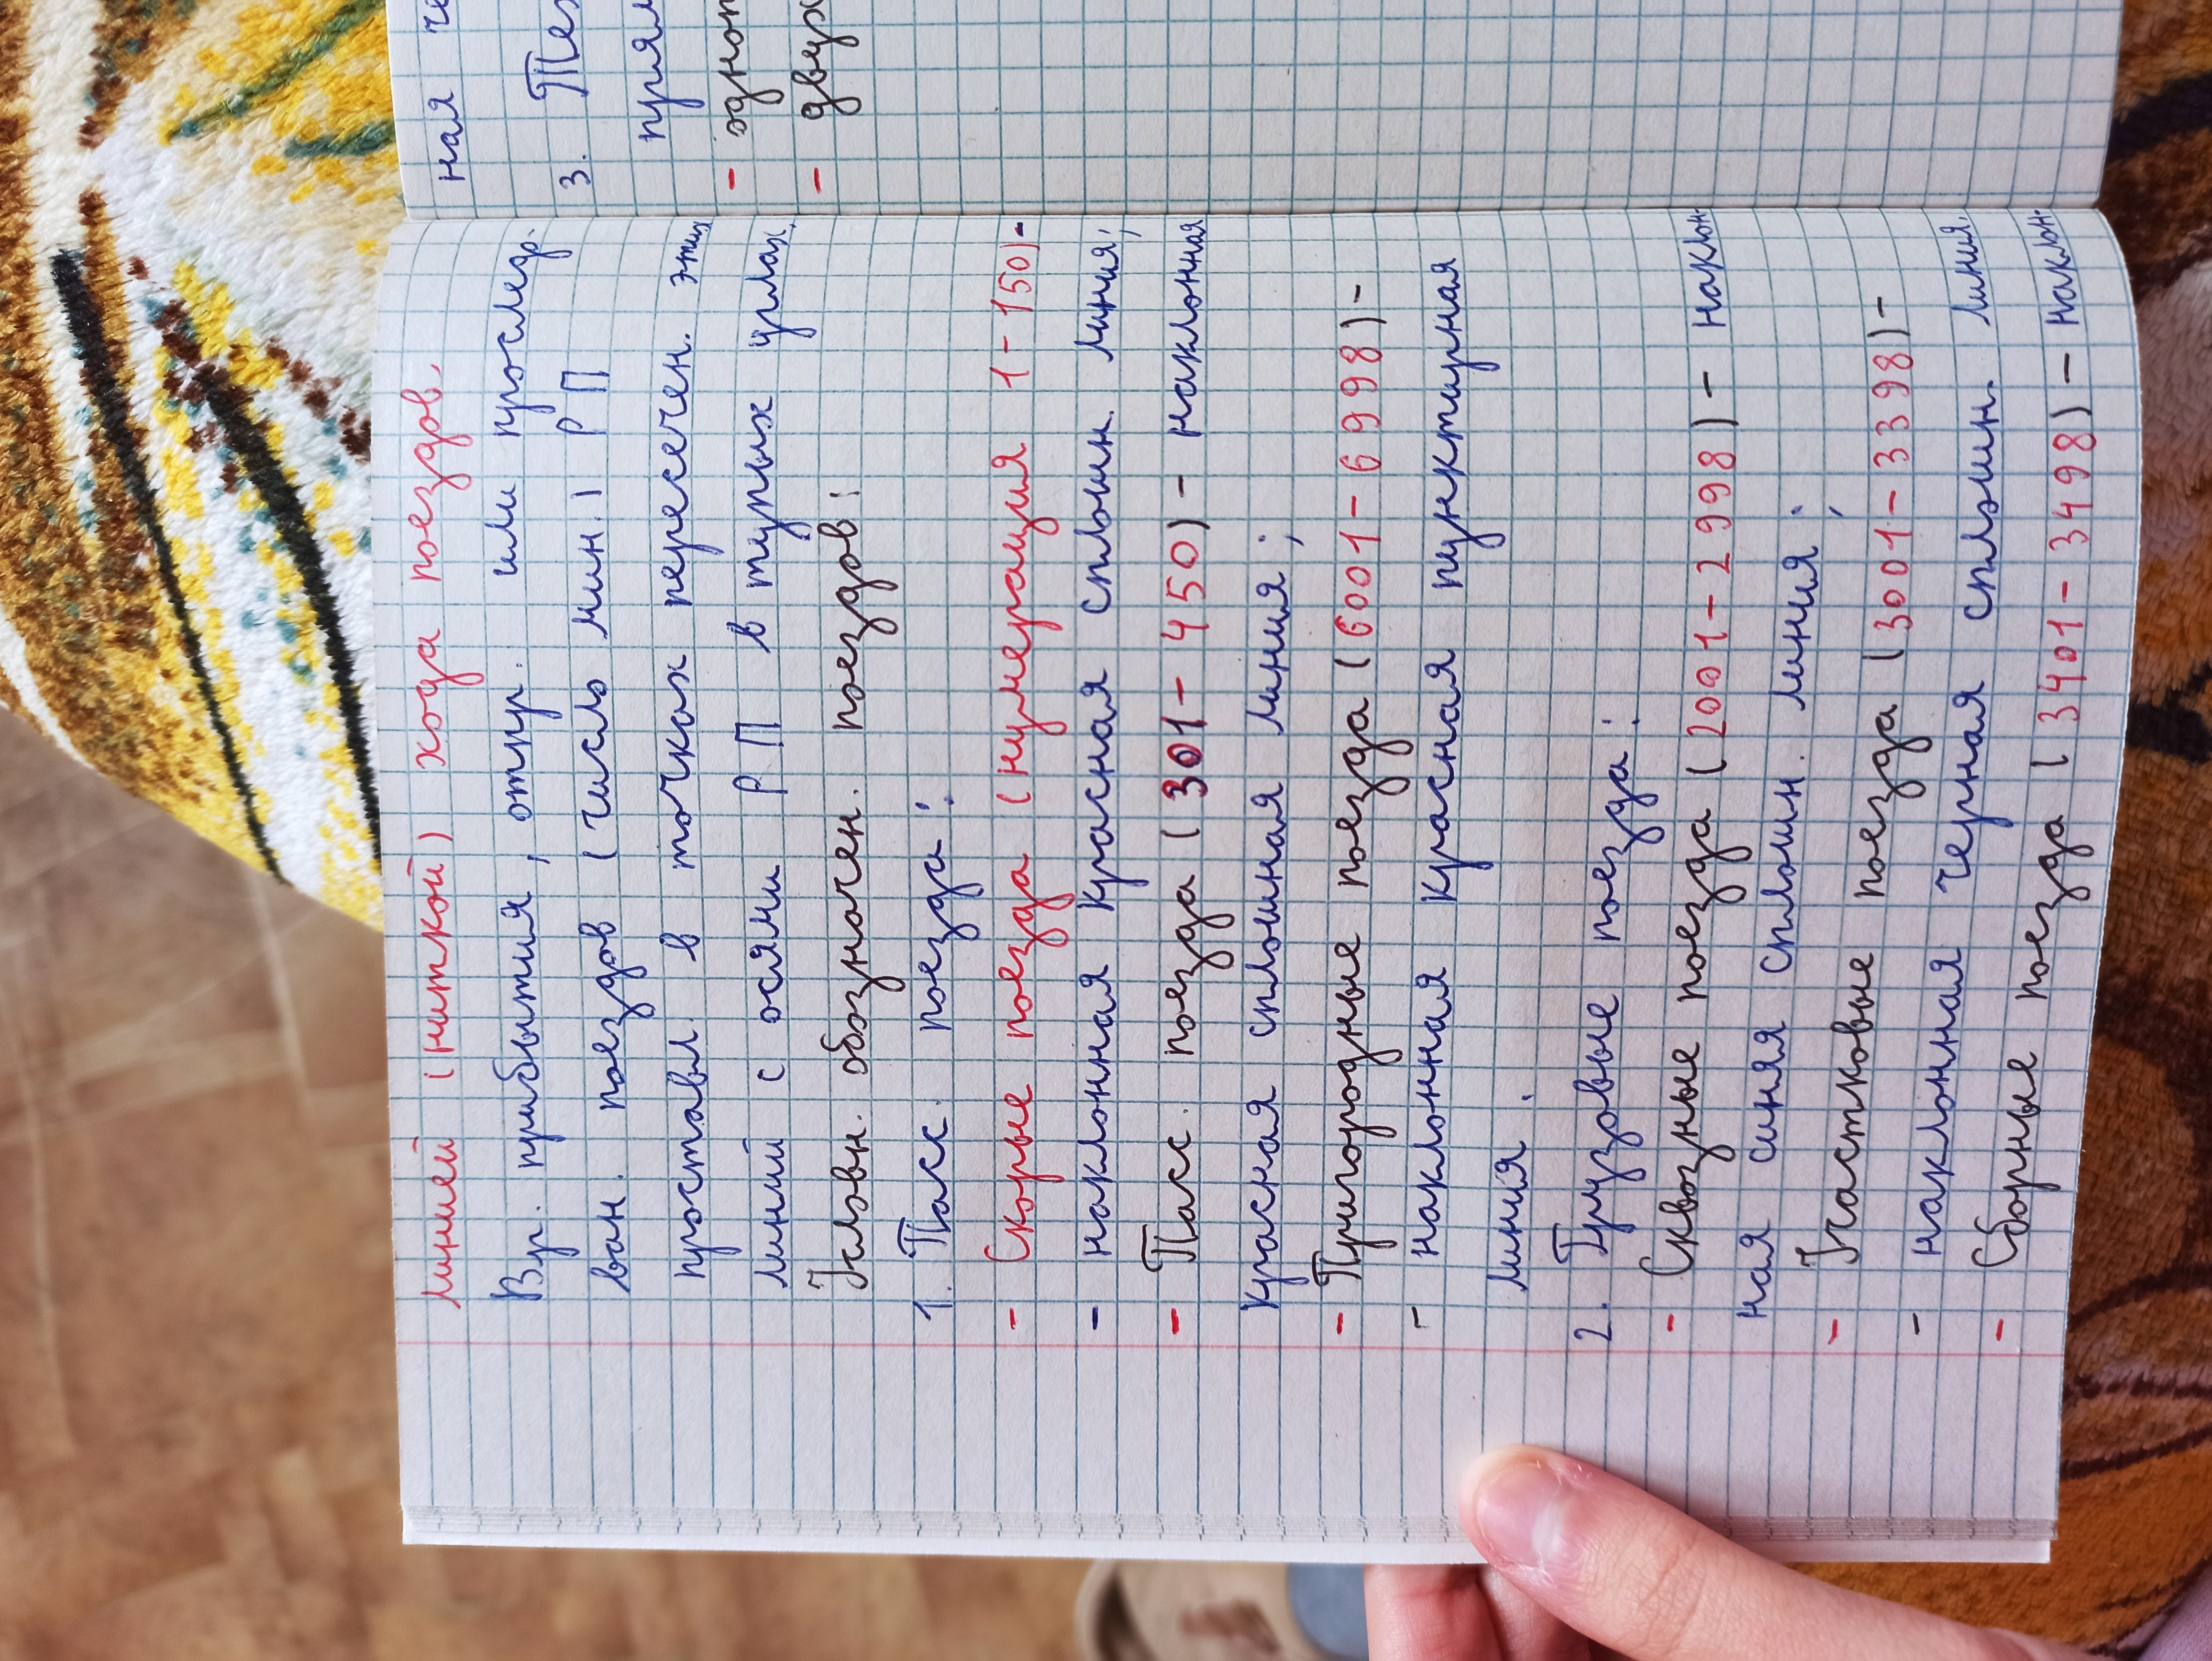 линией (ниткой) хода поездов.
Вр. прибытия, отпр. или прослед.
ван. поездов (число мин.) РП
проставл. в точках пересечен. этих
линий с осями РП в тупых углах.
Условн. обозначен. поездов:
1. Пасс. поезда:
- Скорые поезда (нумерация 1-150)-
- наклонная красная сплошн. линия;
- Пасс. поезда (301-450) - наклонная
красная сплошная линия;
- Пригородные поезда (6001-6998)-
- наклонная красная пунктирная
линия.
2. Грузовые поезда:
- Сквозные поезда (2001-2998) - наклон-
ная синяя сплошн. линия;
- Участковые поезда (3001-3398)-
- наклонная черная сплошн. линия.
- Сборные поезда (3401-3498) - наклон-
ная
3.
- 
-